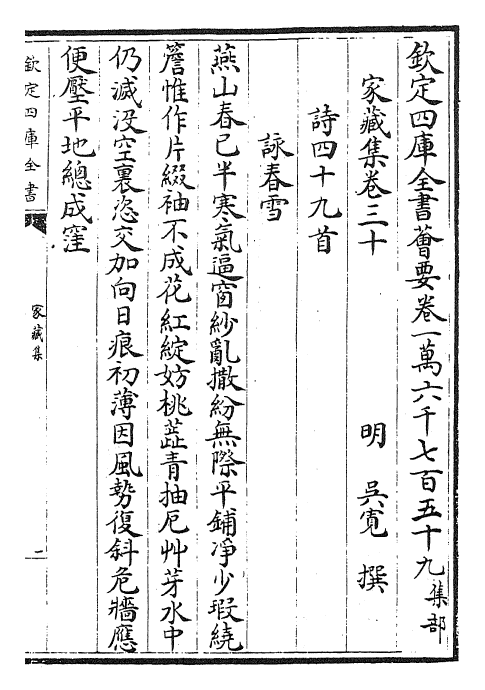 欽定四庫全書薈要卷一萬六千七百五十九集部
家藏集卷三十　明　吳寛　撰
詩四十九首
詠春雪
燕山春已半寒氣逼窗紗亂撒紛無際平鋪凈少瑕繞
簷惟作片綴袖不成花紅綻妨桃蘂青抽厄艸芽水中
仍滅没空裏恣交加向日痕初薄因風勢復斜危牆應
便壓平地總成窪
欽定四庫全書
家藏集
二